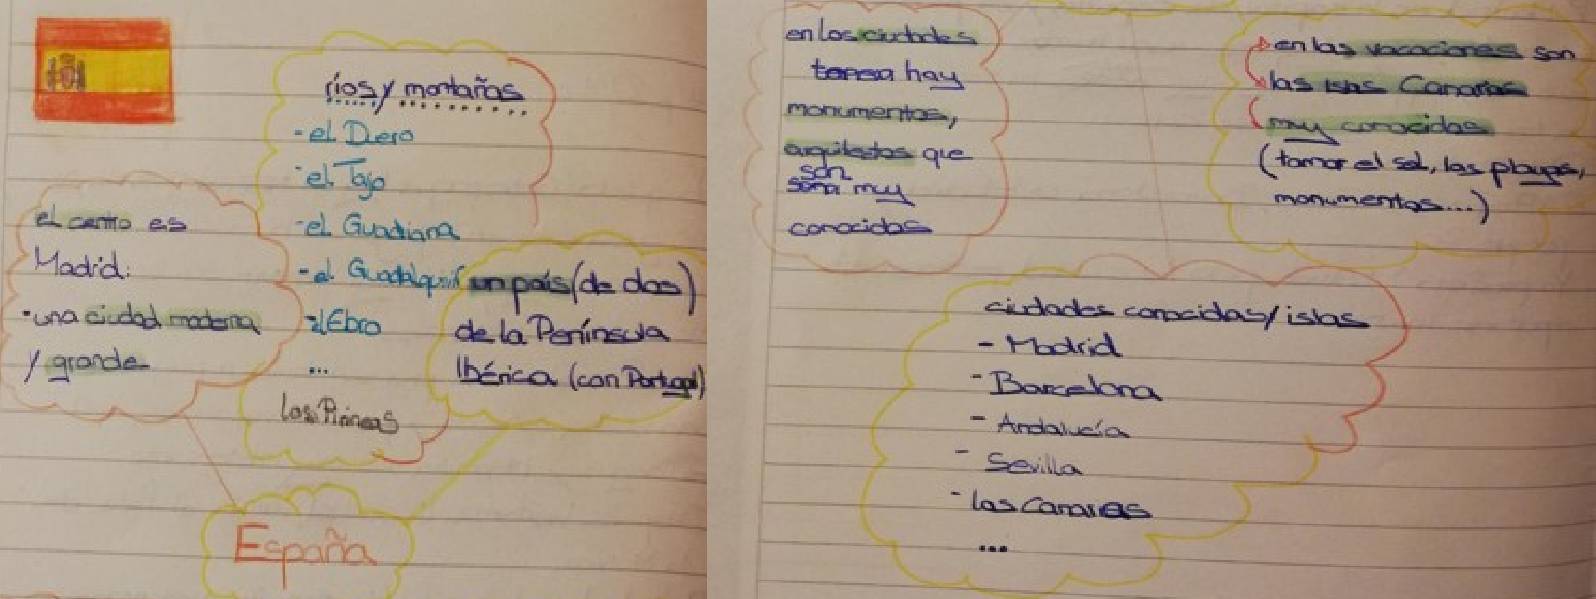 ríos y montañas
- el Duero
- el Tajo
- el Guadiana
- el Guadalquir
- el Ebro
...
los Pirineos
el centro es
Madrid:
- una ciudad moderna
y grande
un país (de dos)
de la Península
Ibérica (con Portugal)
España
en los ciudades
hay
monumentos,
arquitectos que
son
muy
conocidos
en las vacaciones son
las Islas Canarias
muy conocidas
(tomar el sol, las playas,
monumentos...)
ciudades conocidas/ islas
- Madrid
- Barcelona
- Andalucía
- Sevilla
- las Canarias
...